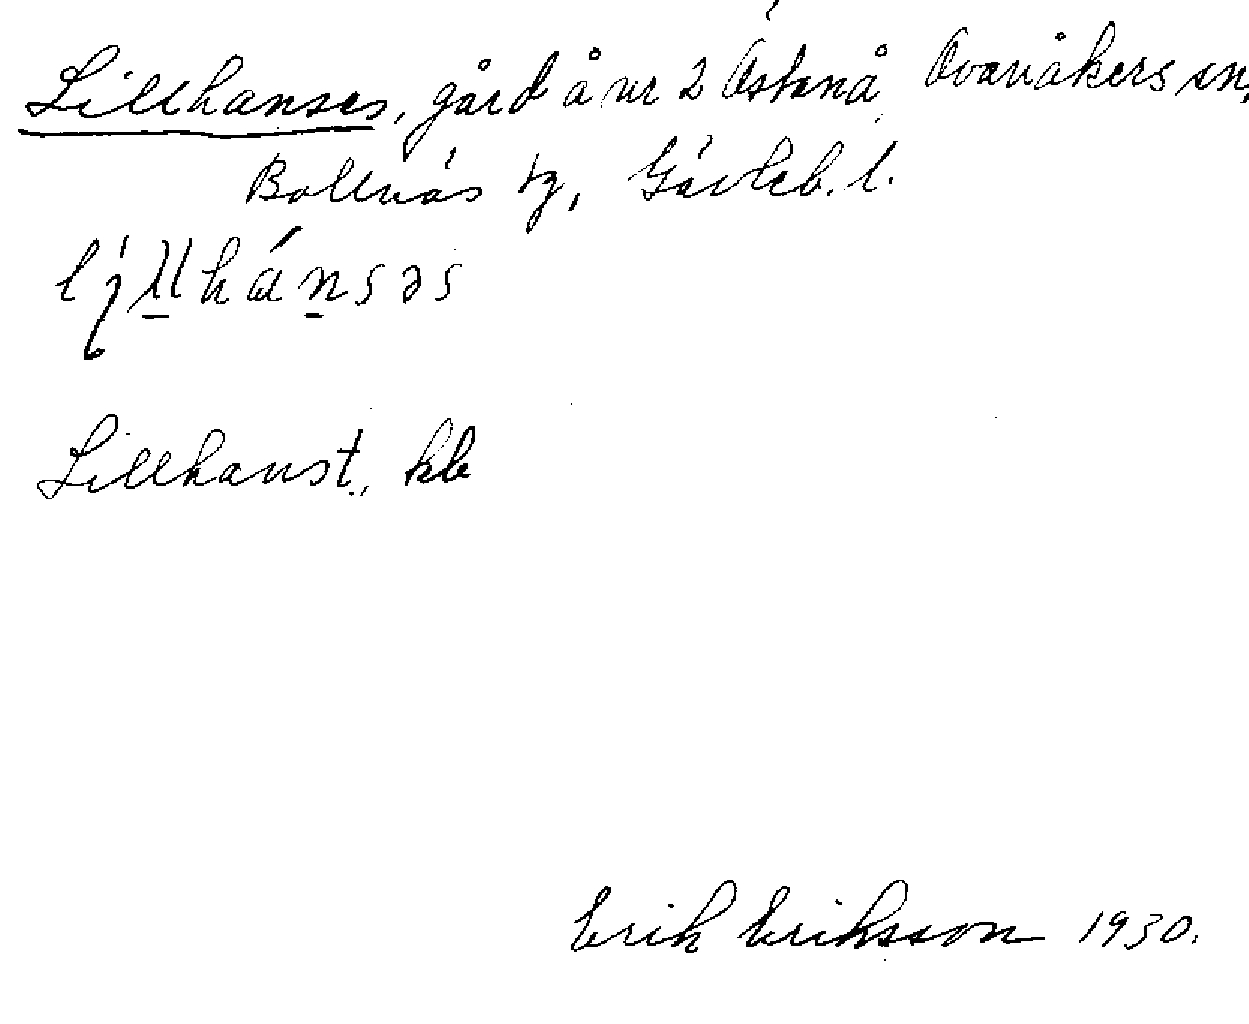 Lillhanses, gård å nr 2 Östanå, Ovanåkers sn,
Bollnäs tg, Gävleb. l.
Lillhanst., kb
Erik Eriksson 1930.